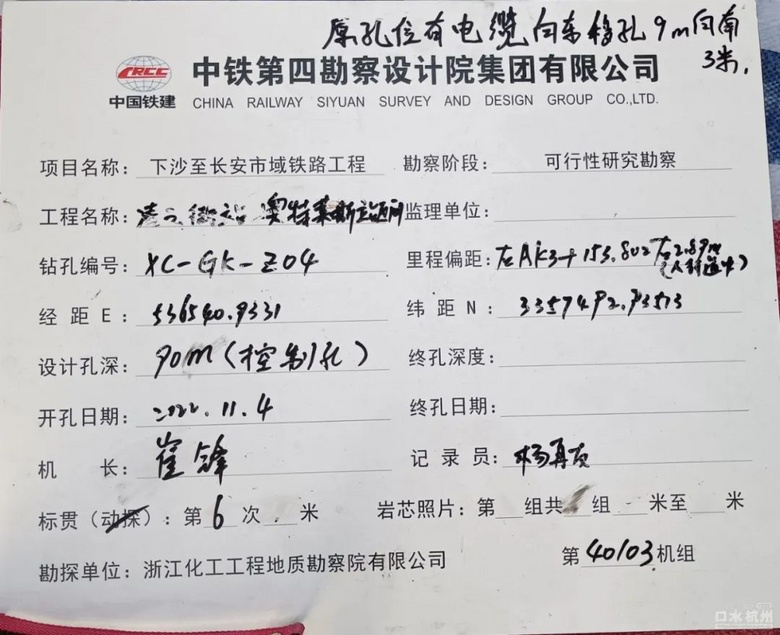 原孔位有电缆向东移孔9m向南
3米.
CRCC
中国铁建
中铁第四勘察设计院集团有限公司
CHINA RAILWAY SIYUAN SURVEY AND DESIGN GROUP CO.,LTD.
项目名称: 下沙至长安市域铁路工程 勘察阶段: 可行性研究勘察
工程名称: 奥特莱斯站 监理单位:
钻孔编号: XC-GK-Z04 里程偏距: 右AK3+153.802右2.89m
(人行道中)
经距E: 536540.9331 纬距N: 3357492.93513
设计孔深: 90m(控制孔) 终孔深度:
开孔日期: 2022.11.4 终孔日期:
机长: 崔锋 记录员: 杨再友
标贯(动探): 第6次 米 岩芯照片: 第 组共 组 米至 米
勘探单位: 浙江化工工程地质勘察院有限公司 第40103机组
口水杭州